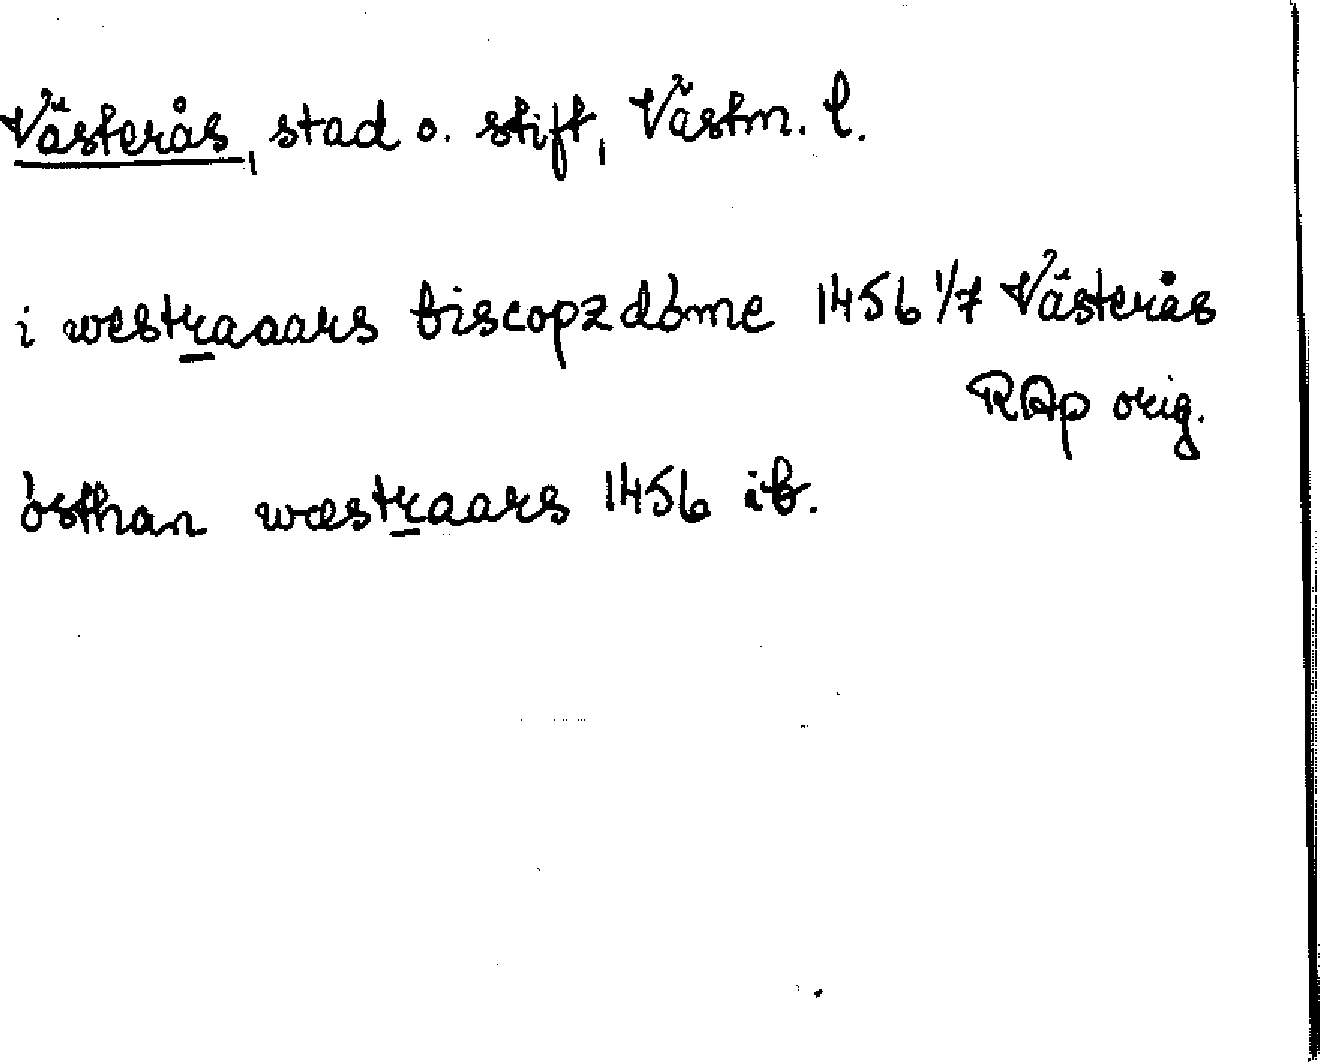 Västerås, stad o. stift, Västm. l.
i westraaars biscopzdöme 1456 1/7 Västerås
RAp orig.
östhan wæstraars 1456 ib.